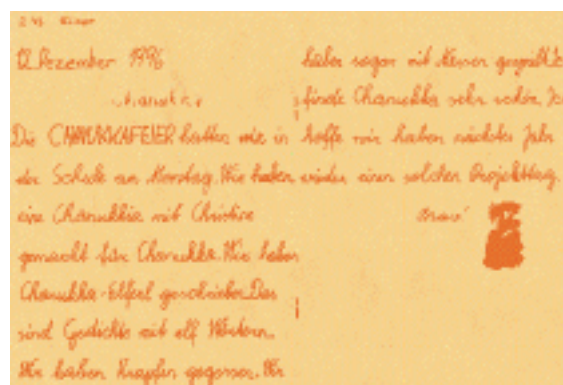 12. Dezember 1996
Chanukka
Die CHANUKKAFEIER hatten wir in
der Schule am Montag. Wir haben
eine Chanukkia mit Christine
gemacht für Chanukka. Wir haben
Chanukka-Elferl geschrieben. Das
sind Gedichte mit elf Wörtern.
Wir haben Krapfen gegessen. Wir
haben sogar mit Kerzen gespielt. Ich
finde Chanukka sehr schön. Ich
hoffe wir haben nächstes Jahr
wieder einen solchen Projekttag.